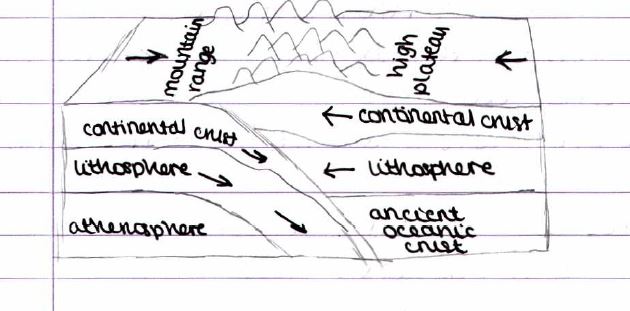 mountain
range
high
plateau
continental crust
continental crust
lithosphere
lithosphere
athenosphere
ancient
oceanic
crust